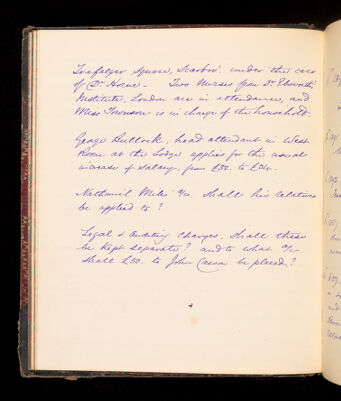 Trafalgar Square, Scarbro', under the care
of Dr. Horne — Two Nurses from Dr.
Institute, London are in attendance, and
Miss Townson is in charge of the household.
George Bullock, head attendant in West
Room at the Lodge applies for the usual
increase of salary, from £32. to £34.
Nathaniel Miles' . Shall his relatives
be applied to?
Legal & Auditing Charges. Shall these
be kept separate? and to what
shall £50. to John be placed?